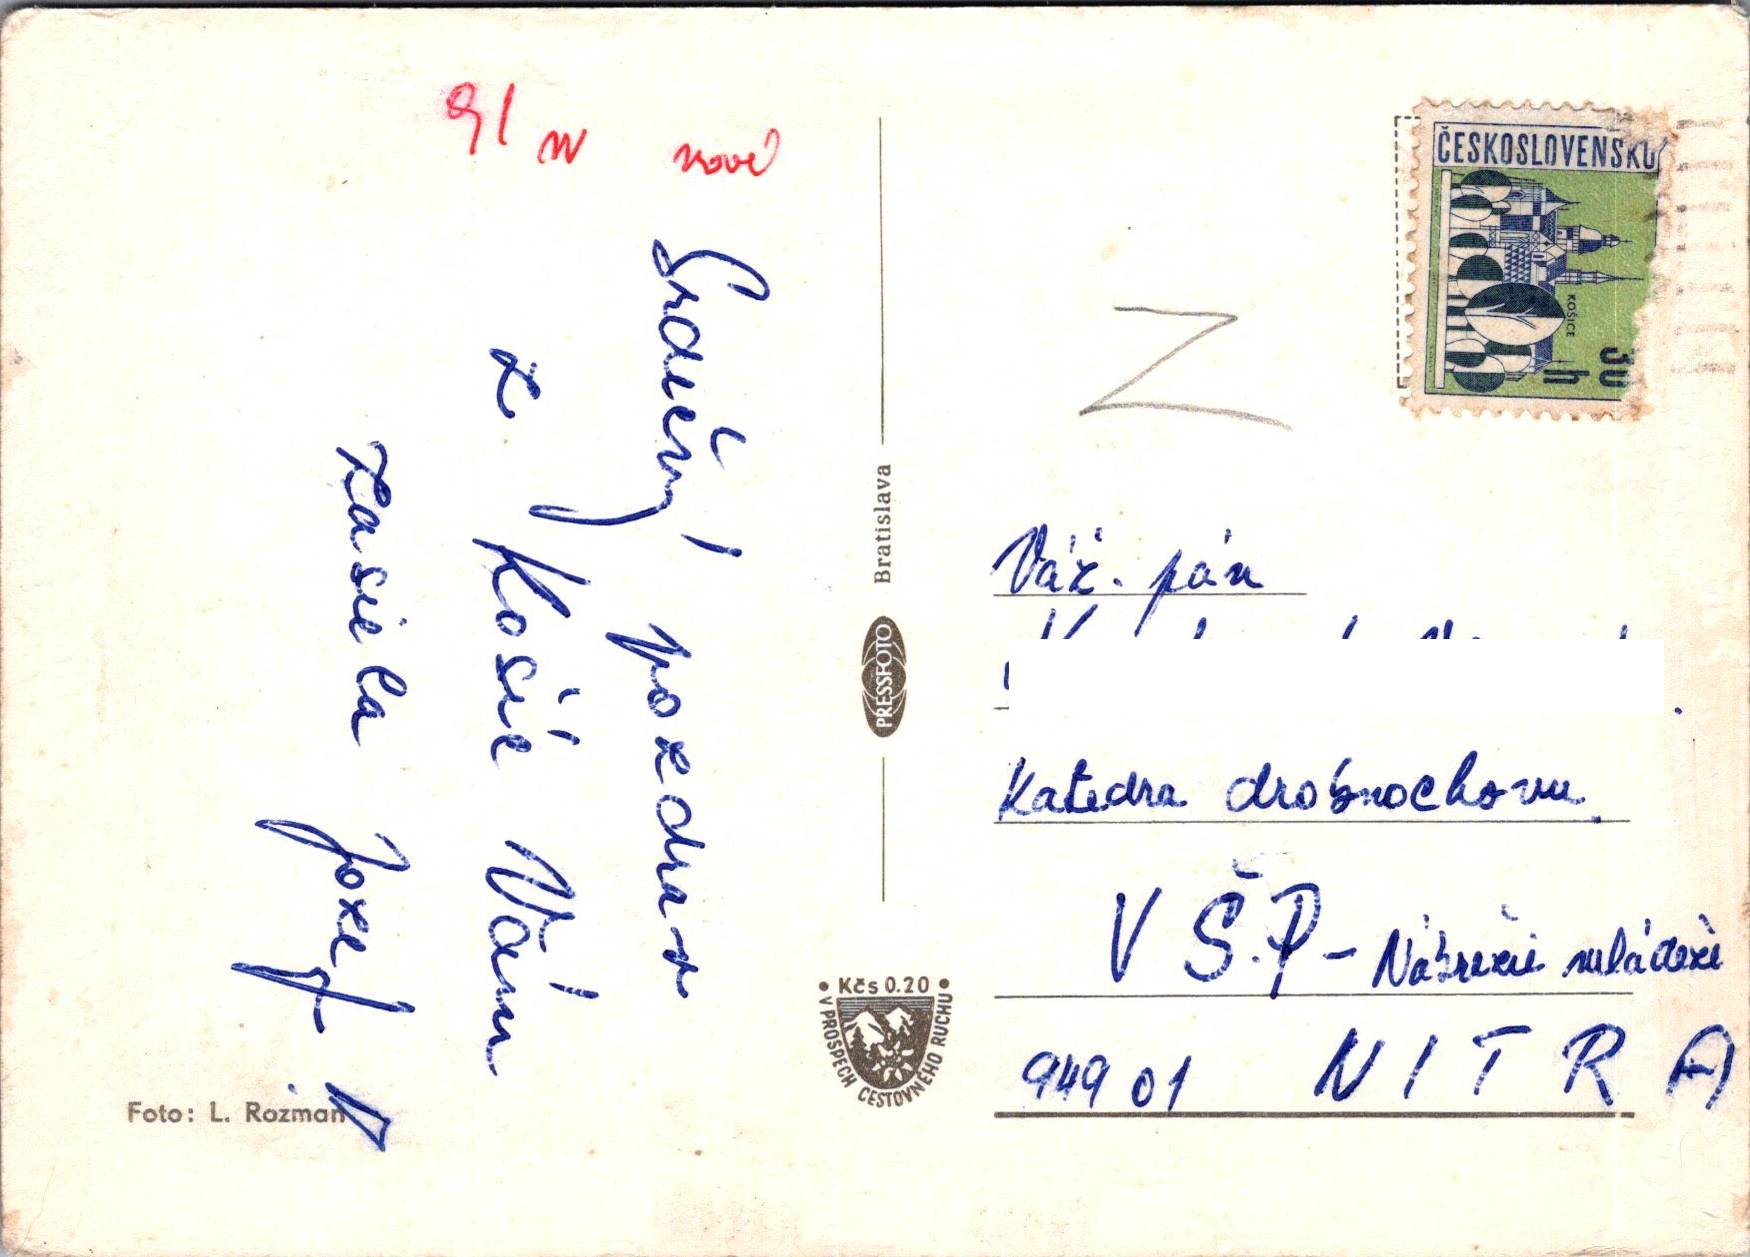 91 N nové
Srdečný pozdrav
z Košíc Vám
zasiela Jozef
Foto: L. Rozman
Bratislava
PRESSFOTO
• Kčs 0.20 •
V PROSPECH CESTOVNÉHO RUCHU
ČESKOSLOVENSKO
KOŠICE
30
h
Z
Váž. pán
Katedra drobnochovu
VŠP - Nábrežie mládeže
949 01 NITRA